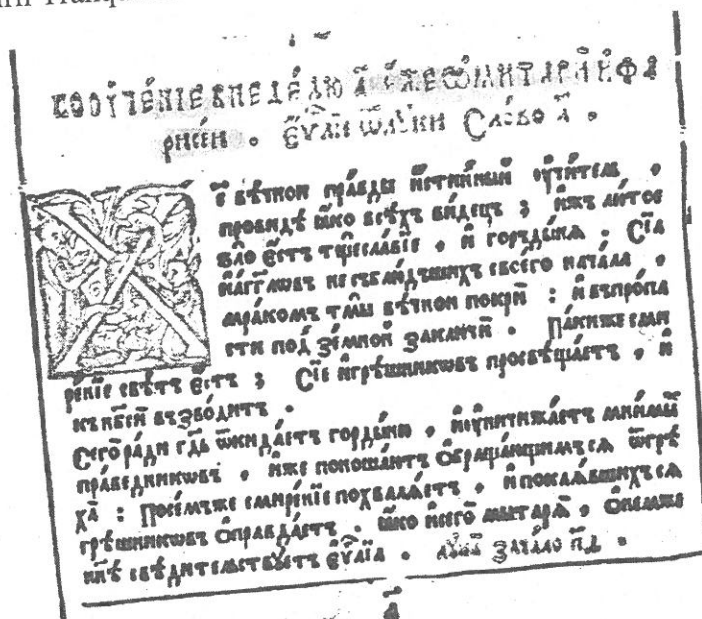 ПООУЧЕ́НІЕ В НЕДЕ́ЛЮ А҃ С҃Ж Е Ѿ МИТАРИ́ И́ ФА
РИСЕ́И . Е҆ѴА҃Л Ѿ ЛꙊКИ СЛО́ВО А҃ .
Х҃Е ВѢ́ЧНОИ ПРА́ВДЫ И҆́СТИННЫЙ ОУ҆ЧИ́ТЕЛЬ ,
ПРОВИДѢ ꙗ҆́КО ВСѢ́ХЪ ВИ́ДЕЦЪ ; И҆́ЖЪ ЛЮ́ТОЕ
ЗЛО Е҆́СТЪ ТЩЕСЛА́ВІЕ , И҆ ГОРЪДЫ́НѦ : СІ́Ѧ
И҆А҆́ГГЛѠВЪ НЕ СЪБЛЮ́ДЪШИХЪ СВОЕ́ГО НАЧА́ЛА ,
МРА́КОМЪ ТМЫ ВѢ́ЧНОИ ПОКРЍ : И҆ ВЪ ПРО́ПА
СТИ ПОД̾ ЗЕ́МНОЙ ЗАКЛЮЧЍ . ПА́КИЖЕ СМИ
РЕ́НІЕ СВѢ́ТЪ Е҆́СТЪ ; СІ́Е И҆ ГРѢ́ШНИКѠВЪ ПРОСВѢЩА́ЕТЪ , И҆
КЪ НБ҃СИ ВЪЗВО́ДИТЪ .
СЕГѠ̀ РА́ДИ ГД҃Ь ѾКИДА́ЕТЪ ГОРДЫ́НЮ , И҆ ОУ҆НИЧИЖА́ЕТЪ МНИ́МЫЙ
ПРА́ВЕДНИКѠВЪ , И҆́ЖЕ ПОНОША́ЮТЪ Ѻ҆БРАЩА́ЮЩИМЪСѦ Ѿ ГРѢ
ХА̀ : ПОСЕ́МЪЖЕ СМИРЕ́НІЕ ПОХВАЛѦ́ЕТЪ , И҆ ПОКАѦ́ВШИХЪСѦ
ГРѢ́ШНИКѠВЪ Ѻ҆ПРАВДА́ЕТЪ . ꙗ҆́КО И҆ СЕГО̀ МЫТАРѦ̀ , Ѻ҆ НЕМЖЕ
НН҃Ѣ СВѢДИ́ТЕЛЬСТВꙊЕТЪ Е҆ѴА҃ЛІѦ . ЛꙊКА̀ ЗАЧА́ЛО П҃Д .